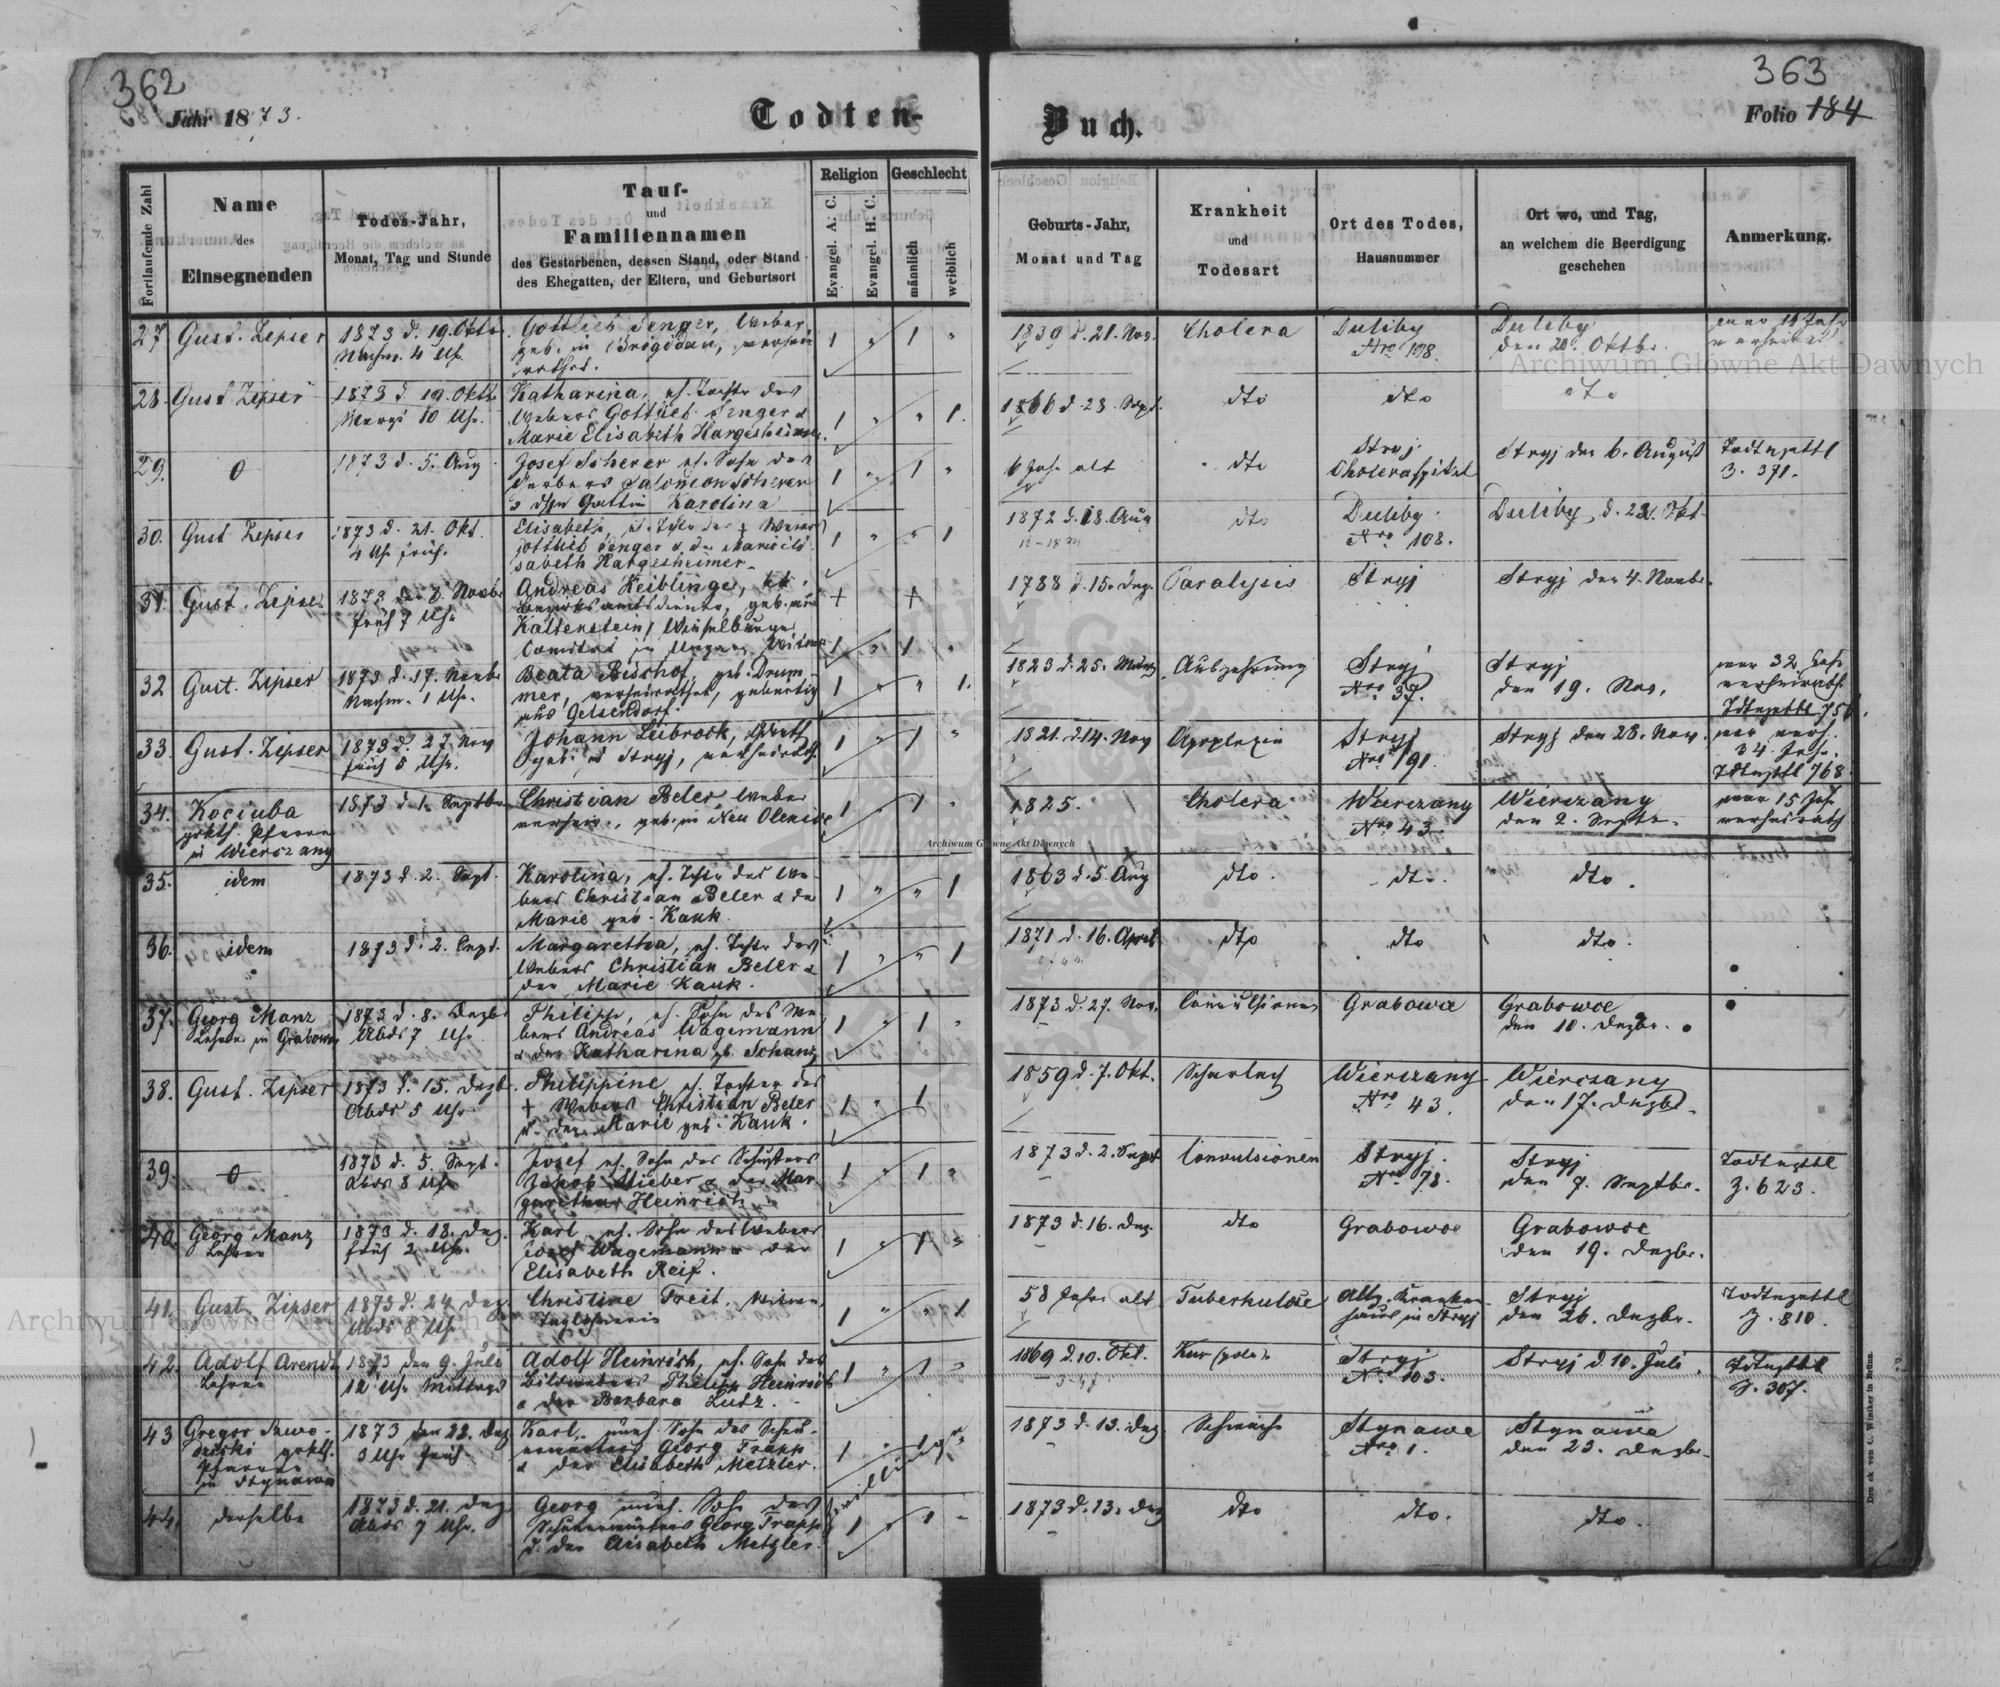 362
Jahr 1873.
Todten-
Buch.
363
Folio 184
Fortlaufende Zahl
Name
des
Einsegnenden
Todes-Jahr,
Monat, Tag und Stunde
Tauf-
und
Familiennamen
des Gestorbenen, dessen Stand, oder Stand
des Ehegatten, der Eltern, und Geburtsort
Religion
Evangel. A. C.
Evangel. H. C.
Geschlecht
männlich
weiblich
Geburts-Jahr,
Monat und Tag
Krankheit
und
Todesart
Ort des Todes,
Hausnummer
Ort wo, und Tag,
an welchem die Beerdigung
geschehen
Anmerkung.
27. Gust. Zipser
1873 d. 19. Oktb.
Nachm. 4 Uh.
Gottlieb Senger, Weber
geb. in Brigidau, verhei
rathet.
1 " 1 "
1839 d. 21. Nov.
Cholera
Duliby
Nro 108.
Duliby
den 20. Oktbr.
war 14 Jahr
28. Gust Zipser
1873 d. 19. Oktb
Morgs 10 Uh.
Katharina, eh. Tochter des
Webers Gottlieb Senger &
Marie Elisabeth Hargesheimer.
1 " " 1.
1866 d. 23. Sept.
dto
dto
dto
29. 0
1873 d. 5. Aug
Josef Scherer eh. Sohn des
Gerbers Salomon Scherer
& dssn Gattin Karolina
1 " 1 "
6 Jahr alt
dto
Stryj
Choleraspital
Stryj den 6. August
Todtnzettl
Z. 371.
30. Gust Zipser
1873 d. 21. Okt.
4 Uh früh.
Elisabeth, eh. Tochter des + Webers
Gottlieb Senger & der Marie Eli
sabeth Hargesheimer.
1 " " 1
1872 d. 18. Aug
dto
Duliby
Nro 108.
Duliby, d. 22. Okt.
31. Gust. Zipser
1873 d. 2. Novbr
früh 7 Uhr
Andreas Keiblinger, kk.
Bezirksamtsdiener, geb. aus
Kaltenstein, Wieselburger
Comitat in Ungarn, Witwer
1 " 1 "
1788 d. 15. Dez.
Paralysis
Stryj
Stryj den 4. Novbr.
32 Gust. Zipser
1873 d. 17. Novbr
Nachm. 1 Uh.
Beata Bischof, geb. Drum
mer, verheirathet, gebürtig
aus Gelsendorf.
1 " " 1.
1823 d. 25. März
Auszehrung
Stryj
Nro 37.
Stryj
den 19. Nov.
war 32 Jahr
verheirath.
33. Gust. Zipser
1873 d. 27. Nov
früh 5 Uhr.
Johann Leibrock, Wirth
geb. in Stryj, verheirath.
1 " 1 "
1821. d. 14. Nov
Apoplexie
Stryj
Nro 191.
Stryj den 28. Nov.
war verh.
34 Jahr.
Tdtnzttl 768.
34. Kociuba
grkth. Pfarrer
in Wierczany
1873 d. 1. Septbr.
Christian Beler Weber
verheir., geb. in Neu Oleksice
1 " 1 "
1825.
Cholera
Wierczany
Nro 43.
Wierczany
den 2. Septr.
war 15 Jahr
verheirath
35. idem
1873 d. 2. Sept.
Karolina, eh. Tchtr des We-
bers Christian Beler & der
Marie geb. Kauk.
1 " " 1
1863 d. 5. Aug
dto.
dto.
dto.
36. idem
1873 d. 2. Sept.
Margaretha, eh. Tochtr des
Webers Christian Beler &
der Marie Kauk.
1 " " 1
1871 d. 16. April
dto
dto
dto.
37. Georg Manz
Lehrer in Grabowce
1873 d. 8. Dezbr
Abds 7 Uhr
Philipp, eh. Sohn des We
bers Andreas Wagemann
& der Katharina gb. Schanz
1 " 1 "
1873 d. 27. Nov.
Convulsionen
Grabowce
Grabowce
den 10. Dezbr.
38. Gust. Zipser
1873 d. 15. Dezbr.
Abds 5 Uhr
Philippine, eh. Tochter des
+ Webers Christian Beler
& der Marie geb. Kauk.
1 " 1
1859 d. 7. Okt.
Scharlach
Wierczany
Nro 43.
Wierczany
den 17. Dezbr.
39. 0
1873 d. 5. Sept.
Abds 8 Uhr
Josef eh. Sohn des Schusters
Jakob Stieber & der Mar
garetha Heinrich
1 " 1 "
1873 d. 2. Sept
Convulsionen
Stryj.
Nro 78.
Stryj
den 7. Septbr.
Todtnzttl
Z. 623.
40. Georg Manz
Lehrer
1873 d. 18. Dez.
früh 2 Uhr.
Karl eh. Sohn des Webers
Josef Wagemann & der
Elisabeth Reif.
1 " 1 "
1873 d. 16. Dez.
dto
Grabowce
Grabowce
den 19. Dezbr.
41. Gust. Zipser
1873 d. 24. Dez.
Abds 8 Uhr
Christine Freit, Witwe,
Taglöhnerin
1 " " 1
58 Jahr alt
Tuberkulose
Allg. Kranken
haus in Stryj
Stryj
den 26. Dezbr.
Todtnzettl
Z. 810.
42. Adolf Arendt
Lehrer
1873 den 9. Juli
12 Uhr Mittags
Adolf Heinrich, eh. Sohn des
Philipp Heinrich
& der Barbara Lutz.
1 " 1 "
1869 d. 10. Okt.
Stryj
Nro 103.
Stryj d. 10. Juli
Tdtnzttl
Z. 307.
43 Gregor
grkth.
Pfarrer
in Stynawa
1873 den 22. Dez
3 Uhr früh.
Karl, uneh. Sohn des Scheu-
Georg Trapp
& der Elisabeth Metzler.
1 " 1 "
Zwillinge
1873 d. 13. Dez
Schwäche
Stynawa
Nro 1.
Stynawa
den 23. Dezbr.
44. derselbe
1873 d. 21. Dez.
Abds 7 Uhr.
Georg uneh. Sohn des
Georg Trapp
& der Elisabeth Metzler.
1 " 1 "
1873 d. 13. Dez
dto
dto.
dto.
Archiwum Główne Akt Dawnych
Archiwum Główne Akt Dawnych
Archiwum Główne Akt Dawnych